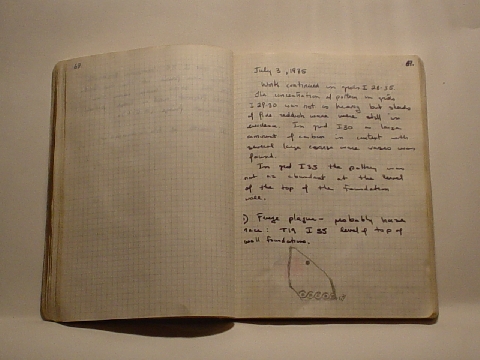 68
69.
July 3, 1985
Work continued in grids I 28-35
The concentration of pottery in grids
I 29-30 was not as heavy but sherds
of fine reddish ware were still in
evidence. In grid I30 a large
amount of carbon in context with
several large coarse ware vases was
found.
In grid I 35 the pottery was
not as abundant at the level
of the top of the foundation
1) plaque - probably
T19 I 35 level of top of
wall foundations.